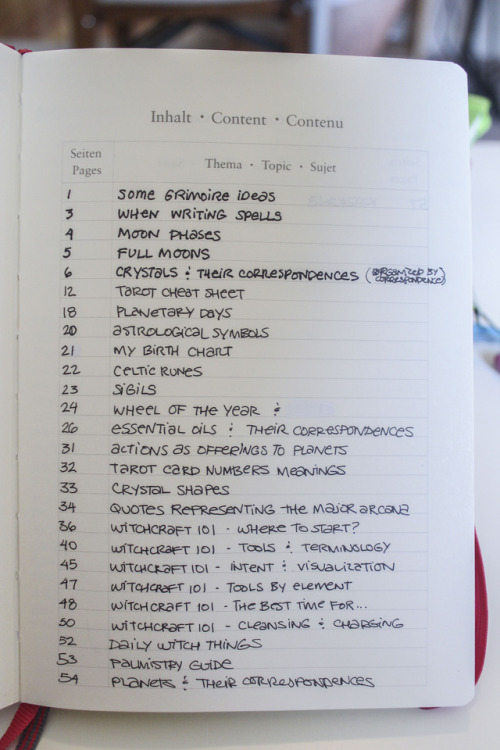 Inhalt • Content • Contenu
Seiten Pages Thema • Topic • Sujet
1 SOME GRIMOIRE IDEAS
3 WHEN WRITING SPELLS
4 MOON PHASES
5 FULL MOONS
6 CRYSTALS & THEIR CORRESPONDENCES (ORGANIZED BY CORRESPONDENCE)
12 TAROT CHEAT SHEET
18 PLANETARY DAYS
20 ASTROLOGICAL SYMBOLS
21 MY BIRTH CHART
22 CELTIC RUNES
23 SIGILS
24 WHEEL OF THE YEAR &
26 ESSENTIAL OILS & THEIR CORRESPONDENCES
31 ACTIONS AS OFFERINGS TO PLANETS
32 TAROT CARD NUMBERS MEANINGS
33 CRYSTAL SHAPES
34 QUOTES REPRESENTING THE MAJOR ARCANA
36 WITCHCRAFT 101 - WHERE TO START?
40 WITCHCRAFT 101 - TOOLS & TERMINOLOGY
45 WITCHCRAFT 101 - INTENT & VISUALIZATION
47 WITCHCRAFT 101 - TOOLS BY ELEMENT
48 WITCHCRAFT 101 - THE BEST TIME FOR...
50 WITCHCRAFT 101 - CLEANSING & CHARGING
52 DAILY WITCH THINGS
53 PALMISTRY GUIDE
54 PLANETS & THEIR CORRESPONDENCES